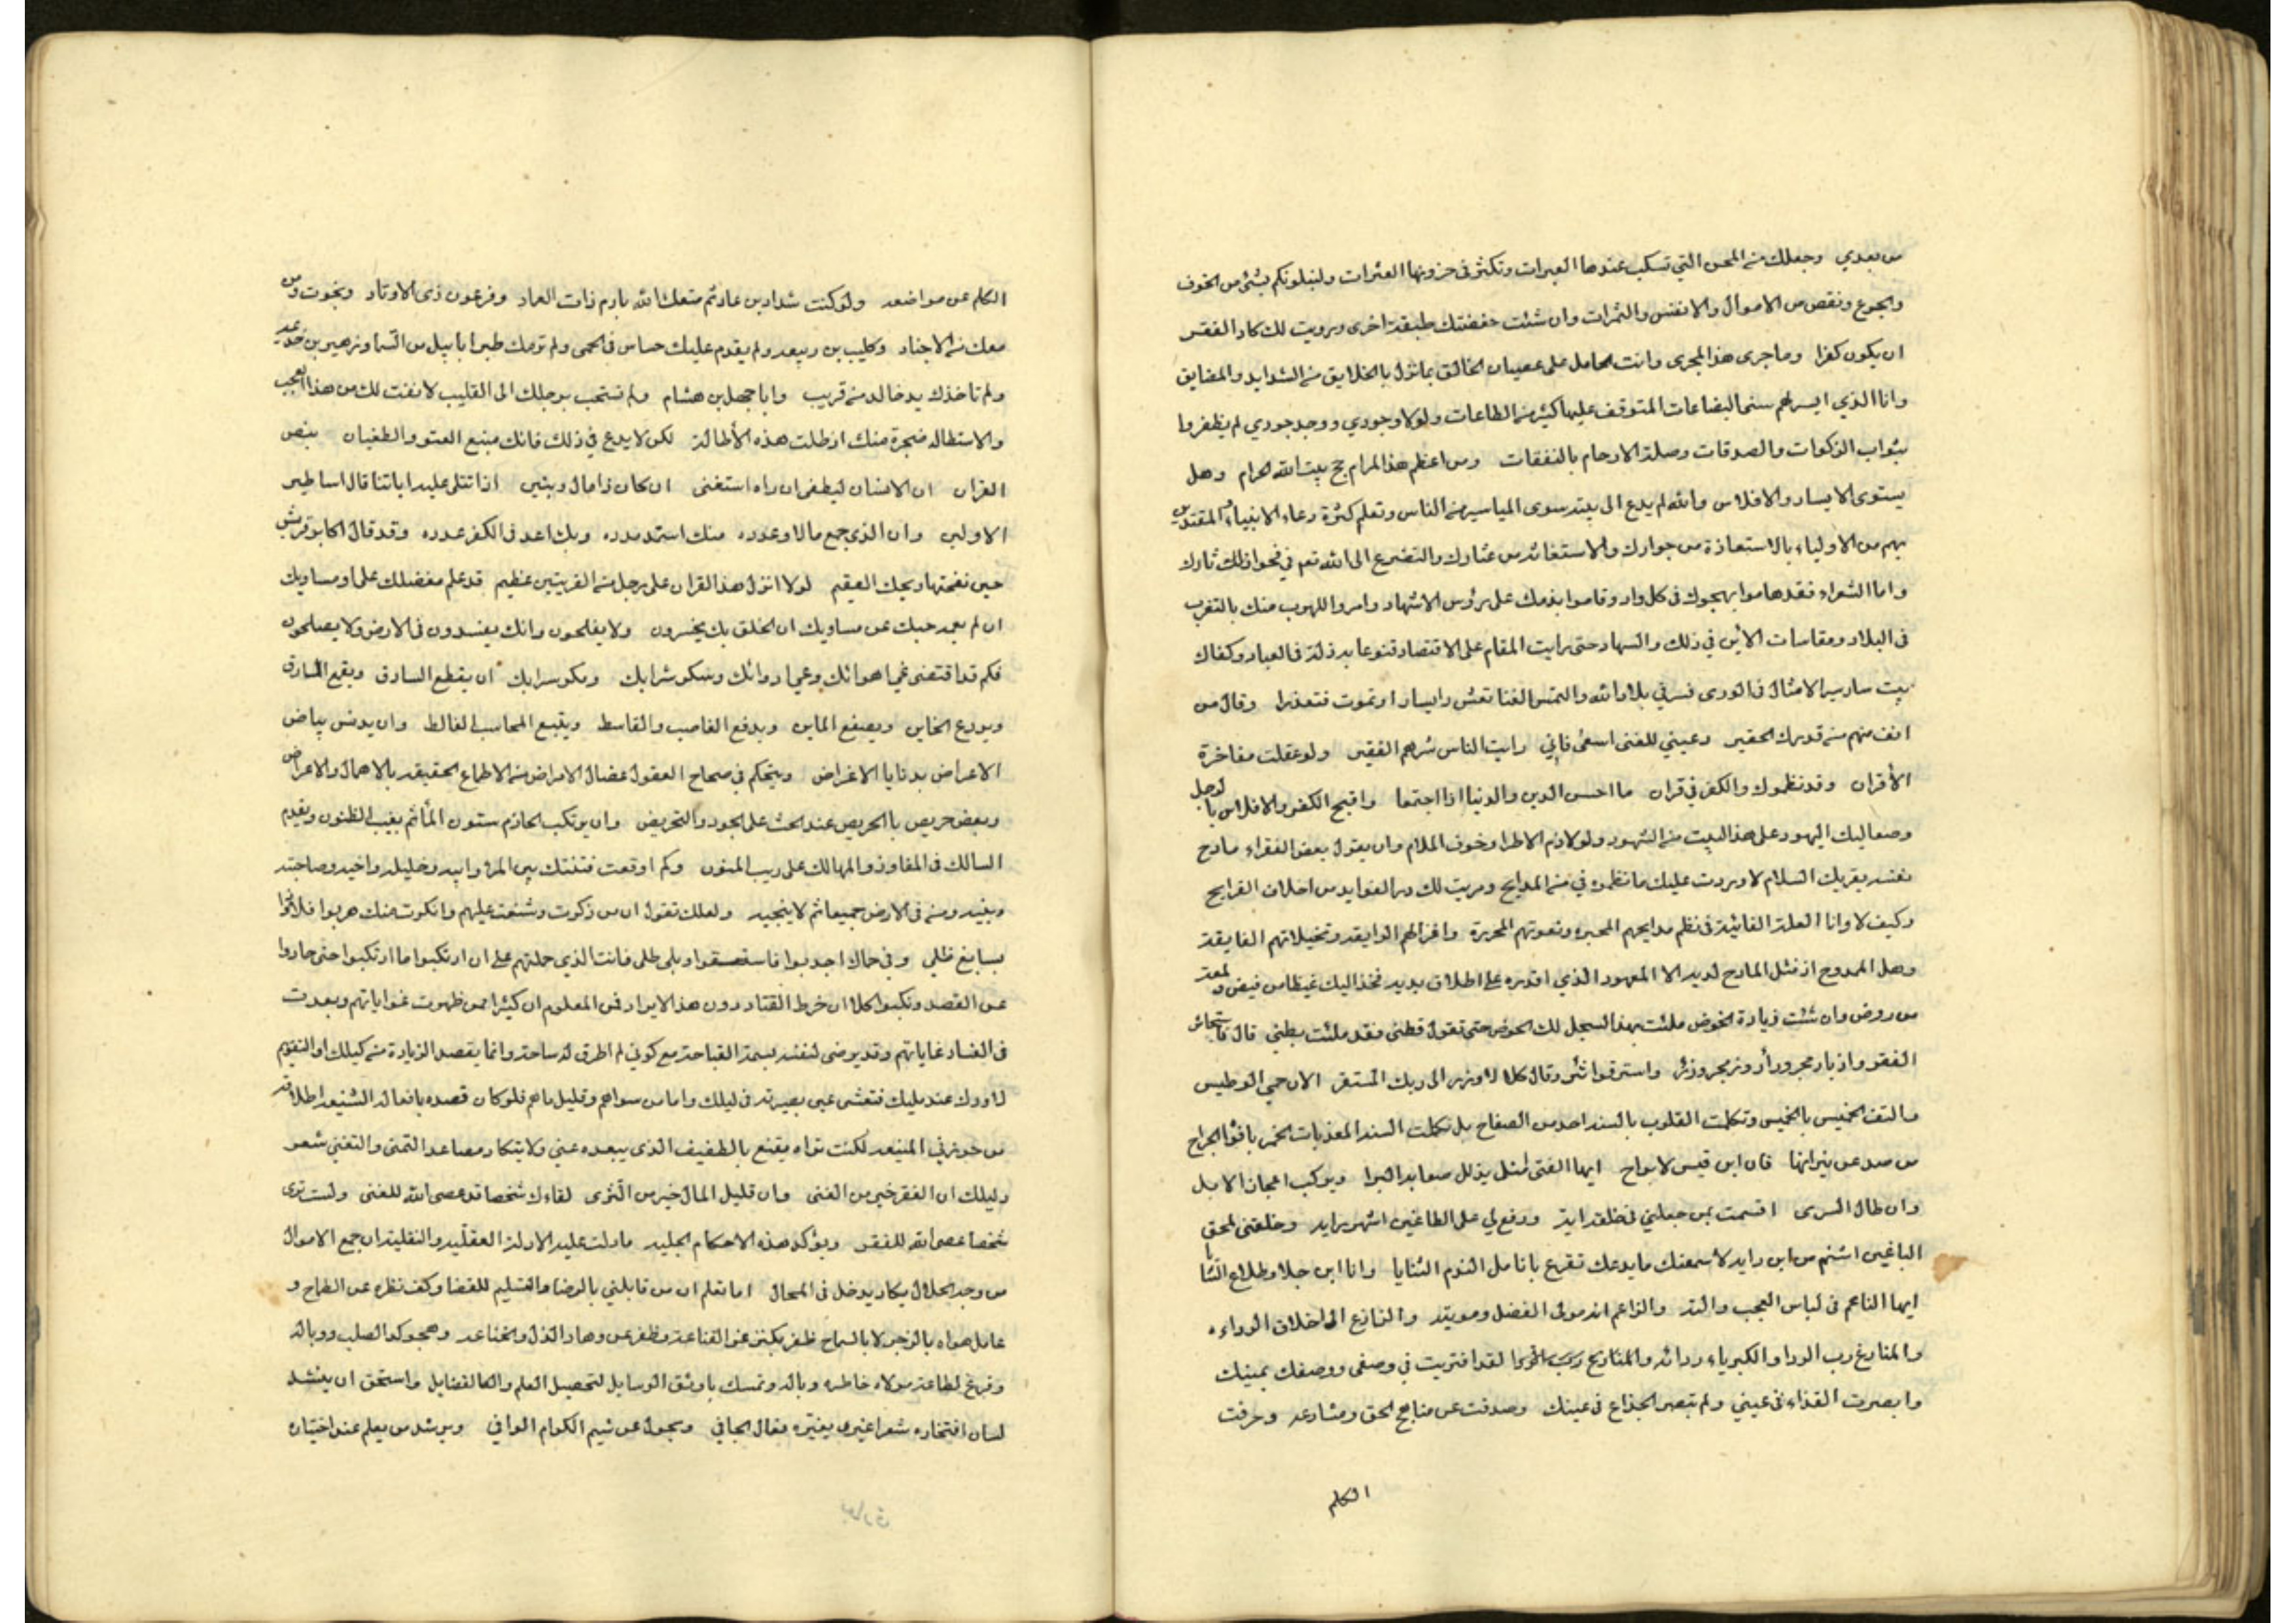 من بعدي وجعلك من المحن التي تسكب عندها العبرات وتكثر في حزونها العثرات ولنبلونكم بشئ من الخوف
والجوع ونقص من الاموال والانفس والثمرات وان شئت خفضتك طبقة اخرى ورويت لك كاد الفقر
ان يكون كفرا وما جرى هذا المجرى وانت الحامل على عصيان الخالق بما نزل بالخلايق من الشدايد والمضايق
وانا الذي ايسر لهم سنى البضاعات المتوقف عليها كثير من الطاعات ولولا وجودي ووجد جودي لم يظفروا
بثواب الزكوات والصدقات وصلة الارحام بالنفقات ومن اعظم هذا المرام حج بيت الله الحرام وهل
يستوى الايسار والافلاس والله لم يدع الى بيته سوى المياسير من الناس وتعلم كثرة دعاء الانبياء والمقتدين
بهم من الاولياء بالاستعاذة من جوارك والاستغاثة من عثارك والتضرع الى الله تعم في فحوا ذلك ثارك
واما الشعراء فقد هاموا بهجوك في كل واد وقاموا بذمك على رؤس الاشهاد وامروا للهرب منك بالتغرب
فى البلاد ومقاسات الاين في ذلك والسهاد حتى رايت المقام على الاقتصاد قنوعا به ذلة في العباد وكفاك
بيت سار سير الامثال في الورى فسر في بلاد الله والتمس الغنا تعش ذا يسار او تموت فتعذرا وقال من
انف منهم من قدرك الحقير دعيني للغنى اسعى فاني رايت الناس شرهم الفقير ولو عقلت مفاخرة
الأقران وقد نظموك والكفر في قران ما احسن الدين والدنيا اذا اجتمعا واقبح الكفر والافلاس بالرجل
وصعاليك اليهود على هذا البيت من الشهود ولولا ذم الاطراء وخوف الملام وان يقول بعض الفقراء مادح
نفسه يقريك السلام لاوردت عليك ما نظموه في من المدايح ومريت لك در الفوايد من اخلاف القرايح
وكيف لا وانا العلة الغائية في نظم مدايحهم المحبره ونعوتهم المحررة واغزالهم الرايقه وتخيلاتهم الفايقة
وهل الممدوح اذ مثل المادح لديه الا المعهود الذي اقدره على اطلاق يديه فخذ اليك غيظا من فيض ولمعة
من روض وان شئت زيادة الخوض ملئت بهذا السجل لك الحوض حتى تقول قطنى فقد ملئت بطني قال فاستجاش
الفقر واذبار مجرورأ وزمجر وزئر واسترقوا شر وقال كلا لا وزر الى ربك المستقر الان حمي الوطيس
والتف الخميس بالخميس وتكلمت القلوب بالسنة احد من الصفاح بل تكلمت السنة المعذبات الخمر بافواه الجراح
من صد عن نيرانها فان ابن قيس لا براح ايها الفتى لمثلي يذلل صعابه البرا ويركب اعجاز الابل
وان طال السرى اقسمت بمن جعلني في خلقه اية ورفع لي على الطاغين اشهر راية وخلقني لمحق
الباغين اشئم من ابن داية لاسمعنك ما يدعك تقرع بانامل الندم الثنايا وانا ابن جلا وطلاع الثنايا
ايها الناعم في لباس العجب والتد والزاعم انه مولى الفضل ومويته والنازع الى اخلاق الرداءه
والمنازع رب الردا والكبرياء ردائه لقد افتريت في وصفي ووصفك بمينك
وابصرت القذاء في عيني ولم تبصر الجذاع في عينك وصدفت عن مناهج الحق ومشارعه وحرفت
الكلم
الكلم عن مواضعه ولو كنت شداد بن عاد ثم متعك الله بارم ذات العماد وفرعون ذى الاوتاد ونجوت ومن
معك من الاجناد وكليب بن ربيعه ولم يقدم عليك جساس في الحمى ولم ترمك طيرا ابابيل من السما وزهير بن جذيمه
ولم تاخذك يد خالد من قريب وابا جهل بن هشام ولم تسحب برجلك الى القليب لانفت لك من هذا العجب
والاستطاله ضجرة منك اذ طلت هذه الأطالة لكن لا بدع في ذلك فانك منبع العتو والطغيان بنص
القران ان الانسان ليطغى ان راه استغنى ان كان ذا مال وبنين اذا تتلى عليه اياتنا قال اساطير
الاولين وان الذي جمع مالا وعدده منك استمد مدده وبك اعد في الكفر عدده وقد قال اكابر قريش
حين نفختها ريحك العقيم لولا انزل هذا القران على رجل من القريتين عظيم قد علم مفضلك على او مساويك
ان لم يعمه حبك عن مساويك ان الخلق بك يخسرون ولا يفلحون وانك يفسدون في الارض ولا يصلحون
فكم قد اقتضى غي اهوائك وعي ادوائك وسكر شرابك ومكر سرابك ان يقطع السارق ويقع المارق
ويودع الخاين ويصفع الماين ويدفع الغاصب والقاسط ويتبع المحاسب الغالط وان يدنس بياض
الاعراض بدنايا الاغراض ويتحكم في صحاح العقول عضال الامراض من الاطماع الحقيقه بالاهمال والاعراض
ويعض حريص بالجريض عند الحث على الجود والتحريض وان يرتكب الحازم متون المأثم بغيب الظنون ويقدم
السالك في المفاوز والمهالك على ريب المنون وكم اوقعت فتنتك بين المرء وابيه وخليله واخيه وصاحبته
وبنيه ومن في الارض جميعا ثم لا ينجيه ولعلك تقول ان من ذكرت وشنعت عليهم وانكرت منك هربوا فلاذوا
بسابغ ظلي وفي حماك اجدبوا فاستسقوا وبلى طلى فانت الذي حملتهم على ان ارتكبوا ما ارتكبوا حتى حادوا
عن القصد ونكبوا كلا ان خرط القتاد دون هذا الايراد فمن المعلوم ان كثيرا ممن ظهرت غواياتهم وبعدت
في الفساد غاياتهم وقد يرضى لنفسه بسمة القباحة مع كوني لم اطرق له ساحة وانما يقصد الزيادة من كيلك او التقويم
لاودك عند ميلك فتعشى عين بصيرته في ليلك واما من سواهم وقليل ما هم فلو كان قصده بافعاله الشنيعه اطلاقه
من حوزتي المنيعه لكنت تراه يقنع بالطفيف الذي يبعده عني ولا يتكاد مصاعد التمنى والتغني شعر
دليلك ان الفقر خير من الغنى وان قليل المال خير من الثرى لقاءك شخصا قد عصى الله للغنى ولست ترى
شخصا عصى الله للفقر ويؤكد هذه الاحكام الجليه ما دلت عليه الادلة العقلية والنقلية ان جمع الاموال
من وجه الحلال يكاد يدخل في المحال اما تعلم ان من قابلني بالرضا والتسليم للقضا وكف نظره عن الطماح و
عامل هواه بالزجر لا بالسماح ظفر بكنز عز القناعة وظفر عن وهاد الذل والخناعه وهجر كد الطلب ووباله
وفرغ لطاعة مولاه خاطره وباله وتمسك باوثق الوسايل لتحصيل العلم والفضايل واستحق ان ينشد
لسان افتخاره شعرا غيرى يغيره فعال الجافي ويحول عن شيم الكرام الوافي ويرشد من يعلم عند اختياره